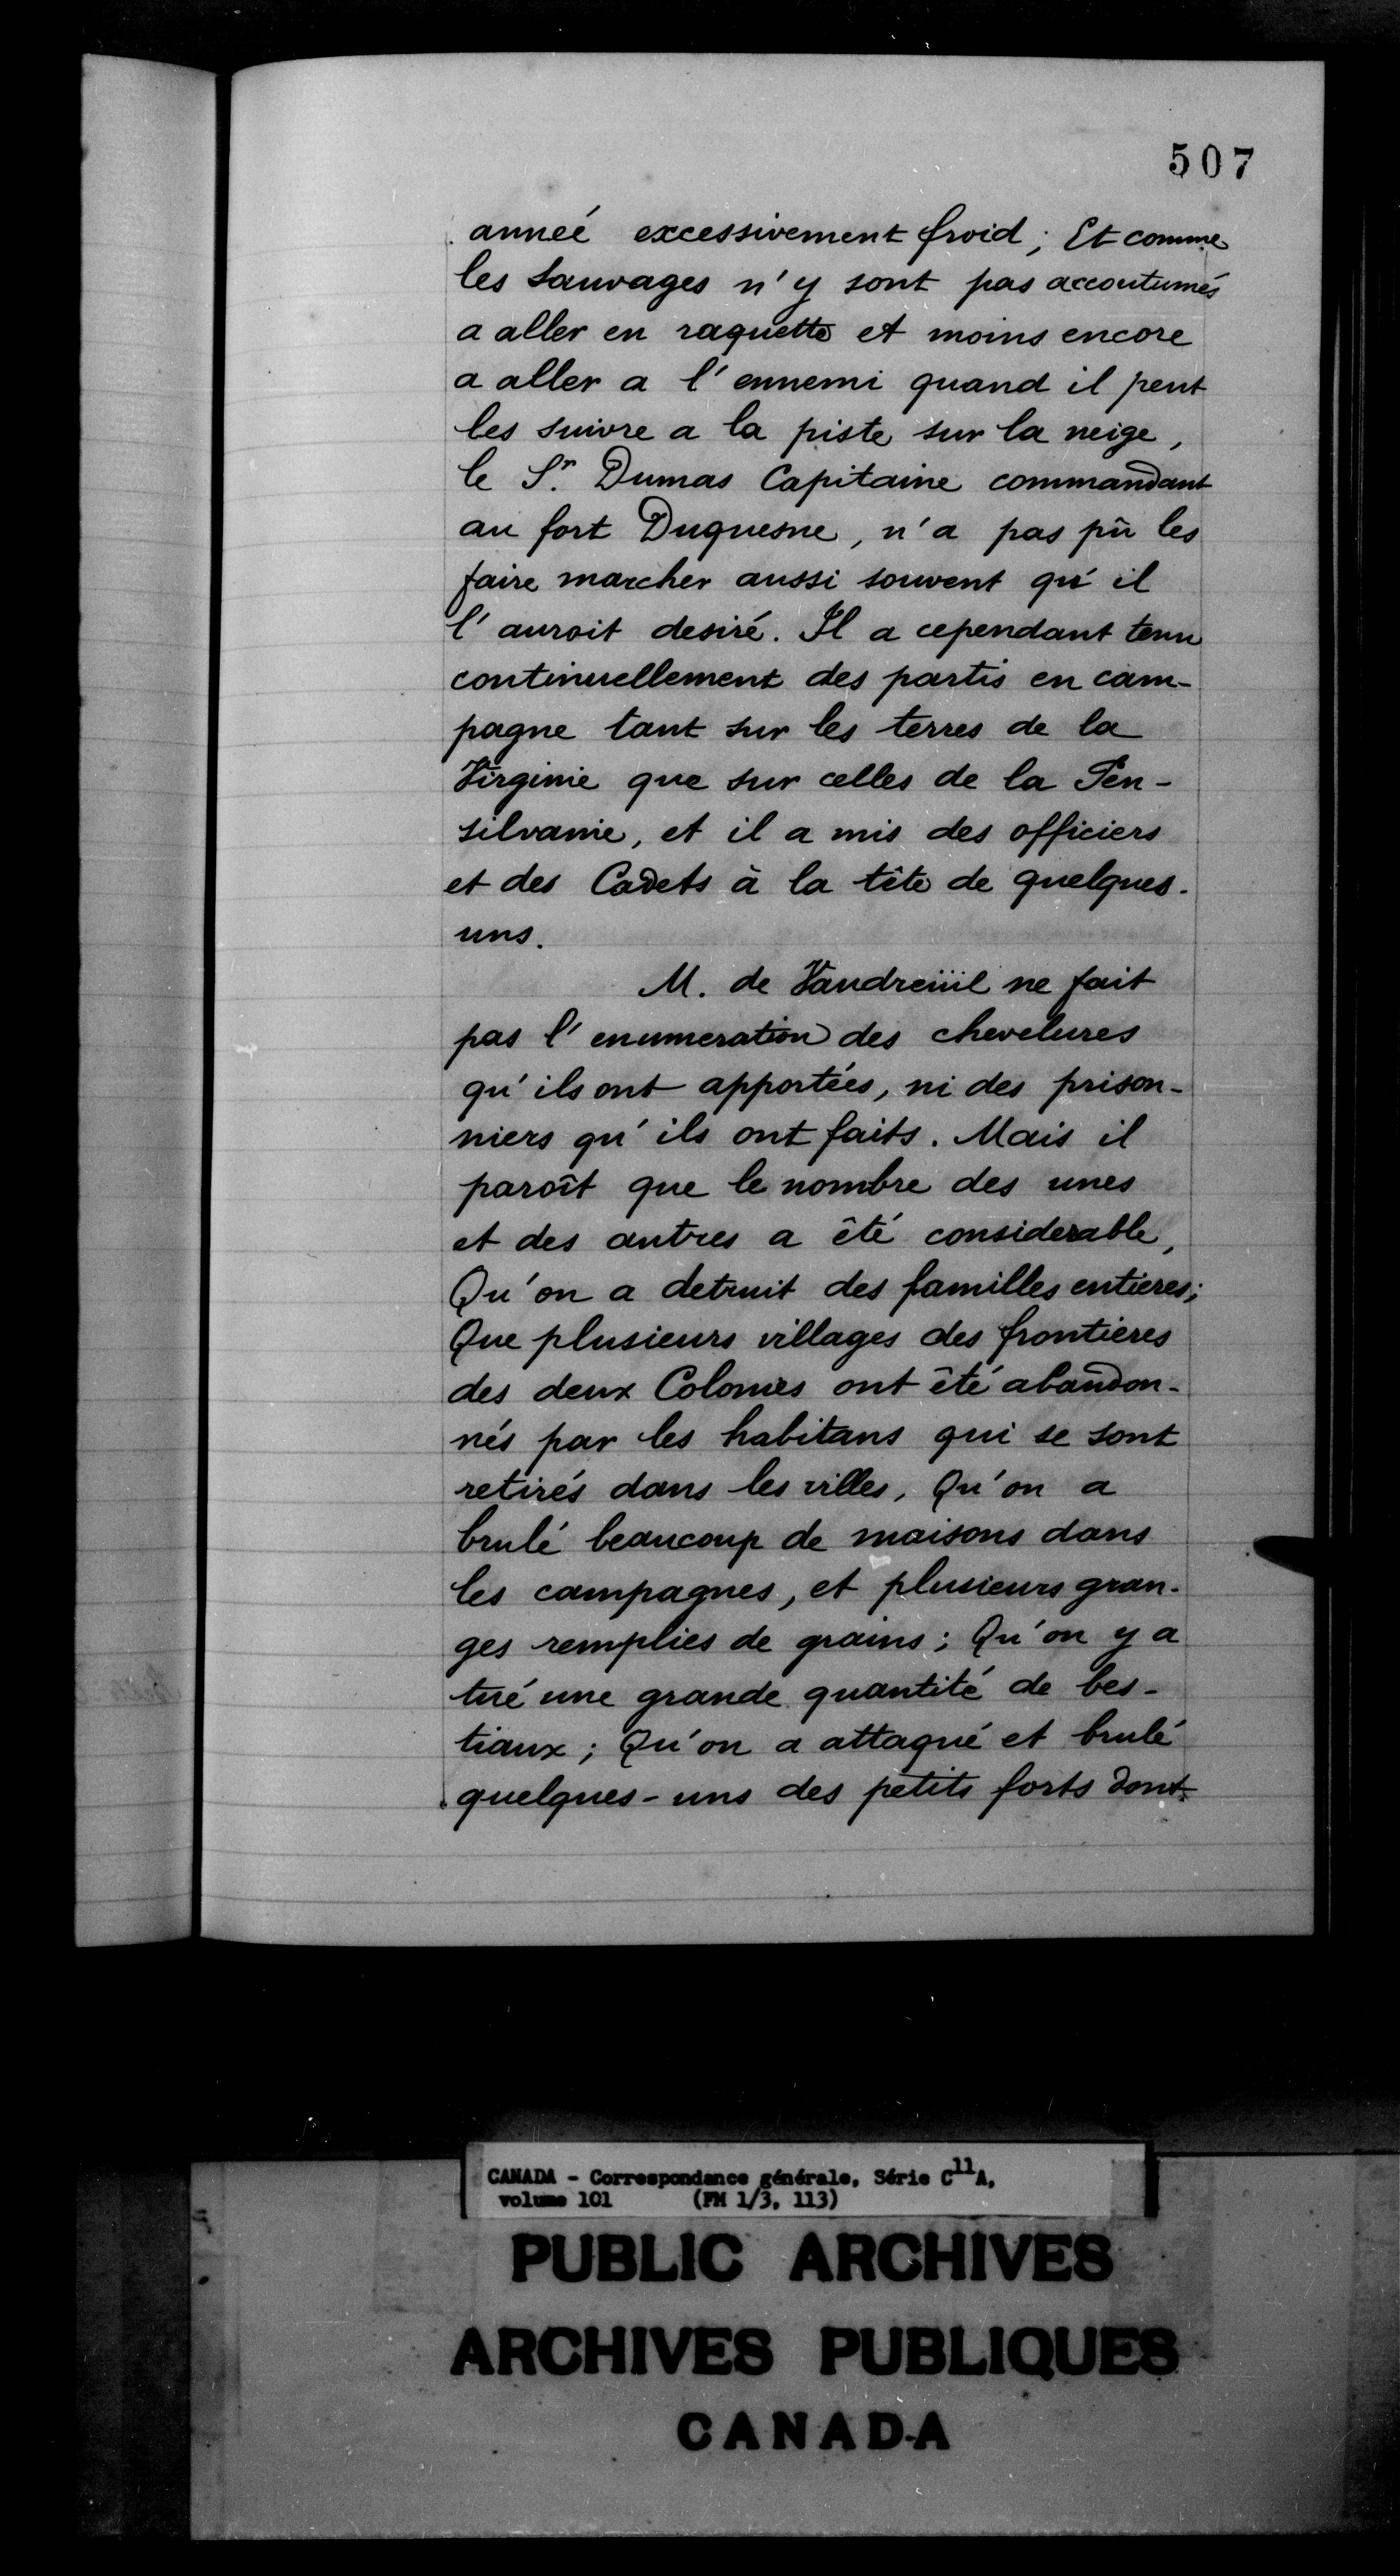 507
anneé excessivement froid; Et comme
les Sauvages n'y sont pas accoutumés
a aller en raquette et moins encore
a aller a l'ennemi quand il peut
les suivre a la piste sur la neige,
le Sr. Dumas Capitaine commandant
au fort Duquesne, n'a pas pû les
faire marcher aussi souvent qu'il
l'auroit desiré. Il a cependant tenu
continuellement des partis en cam-
pagne tant sur les terres de la
Virginie que sur celles de la Pen-
silvanie, et il a mis des officiers
et des Cadets à la tête de quelques-
uns.
M. de Vaudreüil ne fait
pas l'enumeration des chevelures
qu'ils ont apportées, ni des prison-
niers qu'ils ont faits. Mais il
paroît que le nombre des unes
et des autres a êté considerable,
Qu'on a detruit des familles entieres;
Que plusieurs villages des frontieres
des deux Colonies ont êté abandon-
nés par les habitans qui se sont
retirés dans les villes, Qu'on a
brulé beaucoup de maisons dans
les campagnes, et plusieurs gran-
ges remplies de grains; Qu'on y a
tué une grande quantité de bes-
tiaux; Qu'on a attaqué et brulé
quelques-uns des petits forts dont
CANADA - Correspondance générale, Série C11A,
volume 101 (FM 1/3, 113)
PUBLIC ARCHIVES
ARCHIVES PUBLIQUES
CANADA